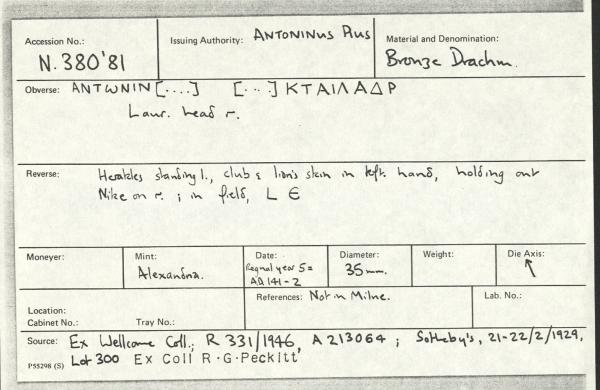 Accession No.: Issuing Authority: ANTONINUS PIUS Material and Denomination:
N.380'81 Bronze Drachm.
Obverse: ANTωNIN[....] [...]KTAIΛAΔP
Laur. head r.
Reverse: Herakles standing l., club & lion's skin in left hand, holding out
Nike on r. ; in field, L Є
Moneyer: Mint: Date: Diameter: Weight: Die Axis:
Alexandria. Regnal year 5 = 35mm. ↖
AD 141-2
References: Not in Milne. Lab. No.:
Location:
Cabinet No.: Tray No.:
Source: Ex Wellcome Coll.; R 331/1946, A 213064 ; Sotheby's, 21-22/2/1929,
P55298 (S) Lot 300 Ex Coll R.G.Peckitt